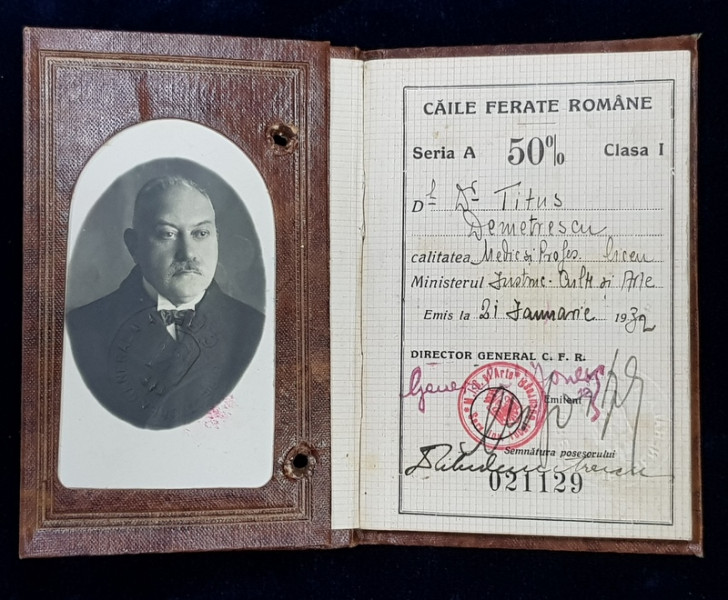 CĂILE FERATE ROMÂNE
Seria A 50% Clasa I
Dl Dr Titus
Demetrescu
calitatea Medic și Profes. liceu
Ministerul Instruc. Culte și Arte
Emis la 21 Ianuarie 1932
DIRECTOR GENERAL C. F. R.
Emitent
Semnătura posesorului
021129